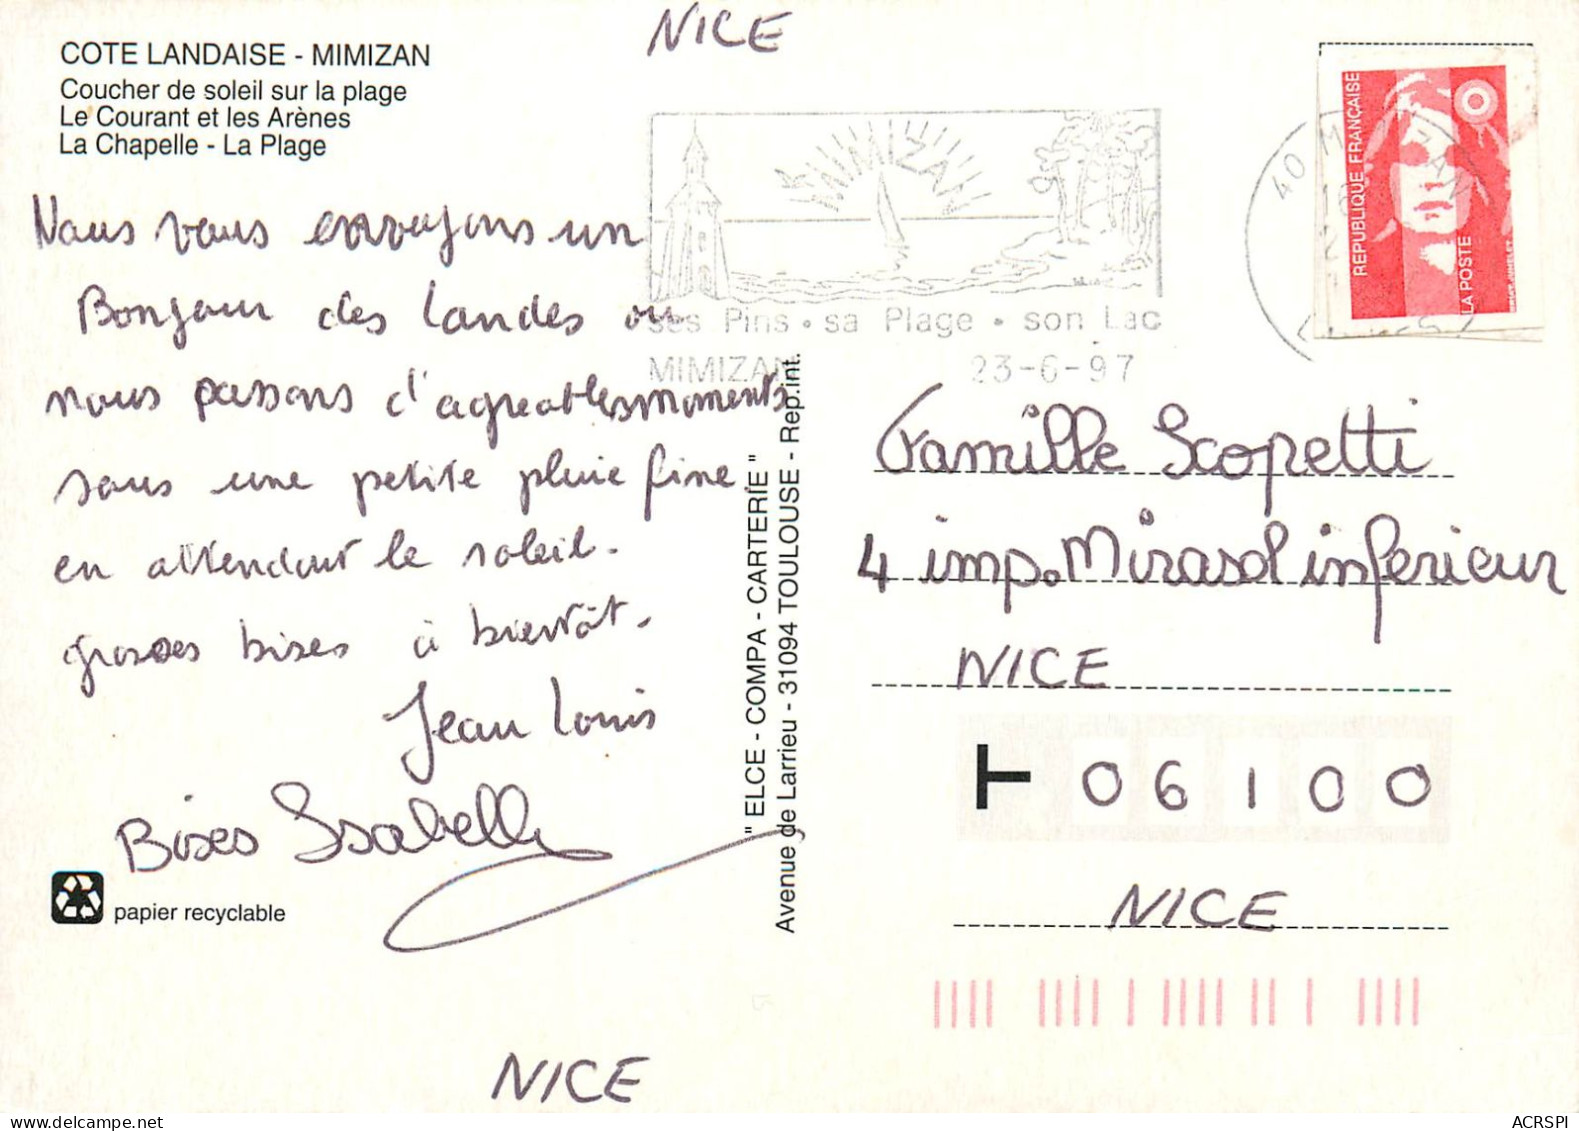 NICE
COTE LANDAISE - MIMIZAN
Coucher de soleil sur la plage
Le Courant et les Arènes
La Chapelle - La Plage
Nous vous envoyons un
Bonjour des Landes où
nous passons d'agreables moments
sous une petite pluie fine
en attendant le soleil.
grosses bises à bientôt.
Jean Louis
Bises Isabelle
papier recyclable
NICE
MIMIZAN
ses Pins • sa Plage • son Lac
MIMIZAN 23-6-97
REPUBLIQUE FRANÇAISE
LA POSTE
" ELCE - COMPA - CARTERIE "
Avenue de Larrieu - 31094 TOULOUSE - Rep.int.
Famille Scopetti
4 imp. Mirasol inferieur
NICE
06100
NICE
ACRSPI